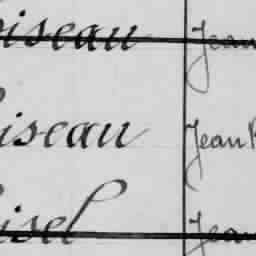 oiseau Jean
oiseau Jean
oisel Jean